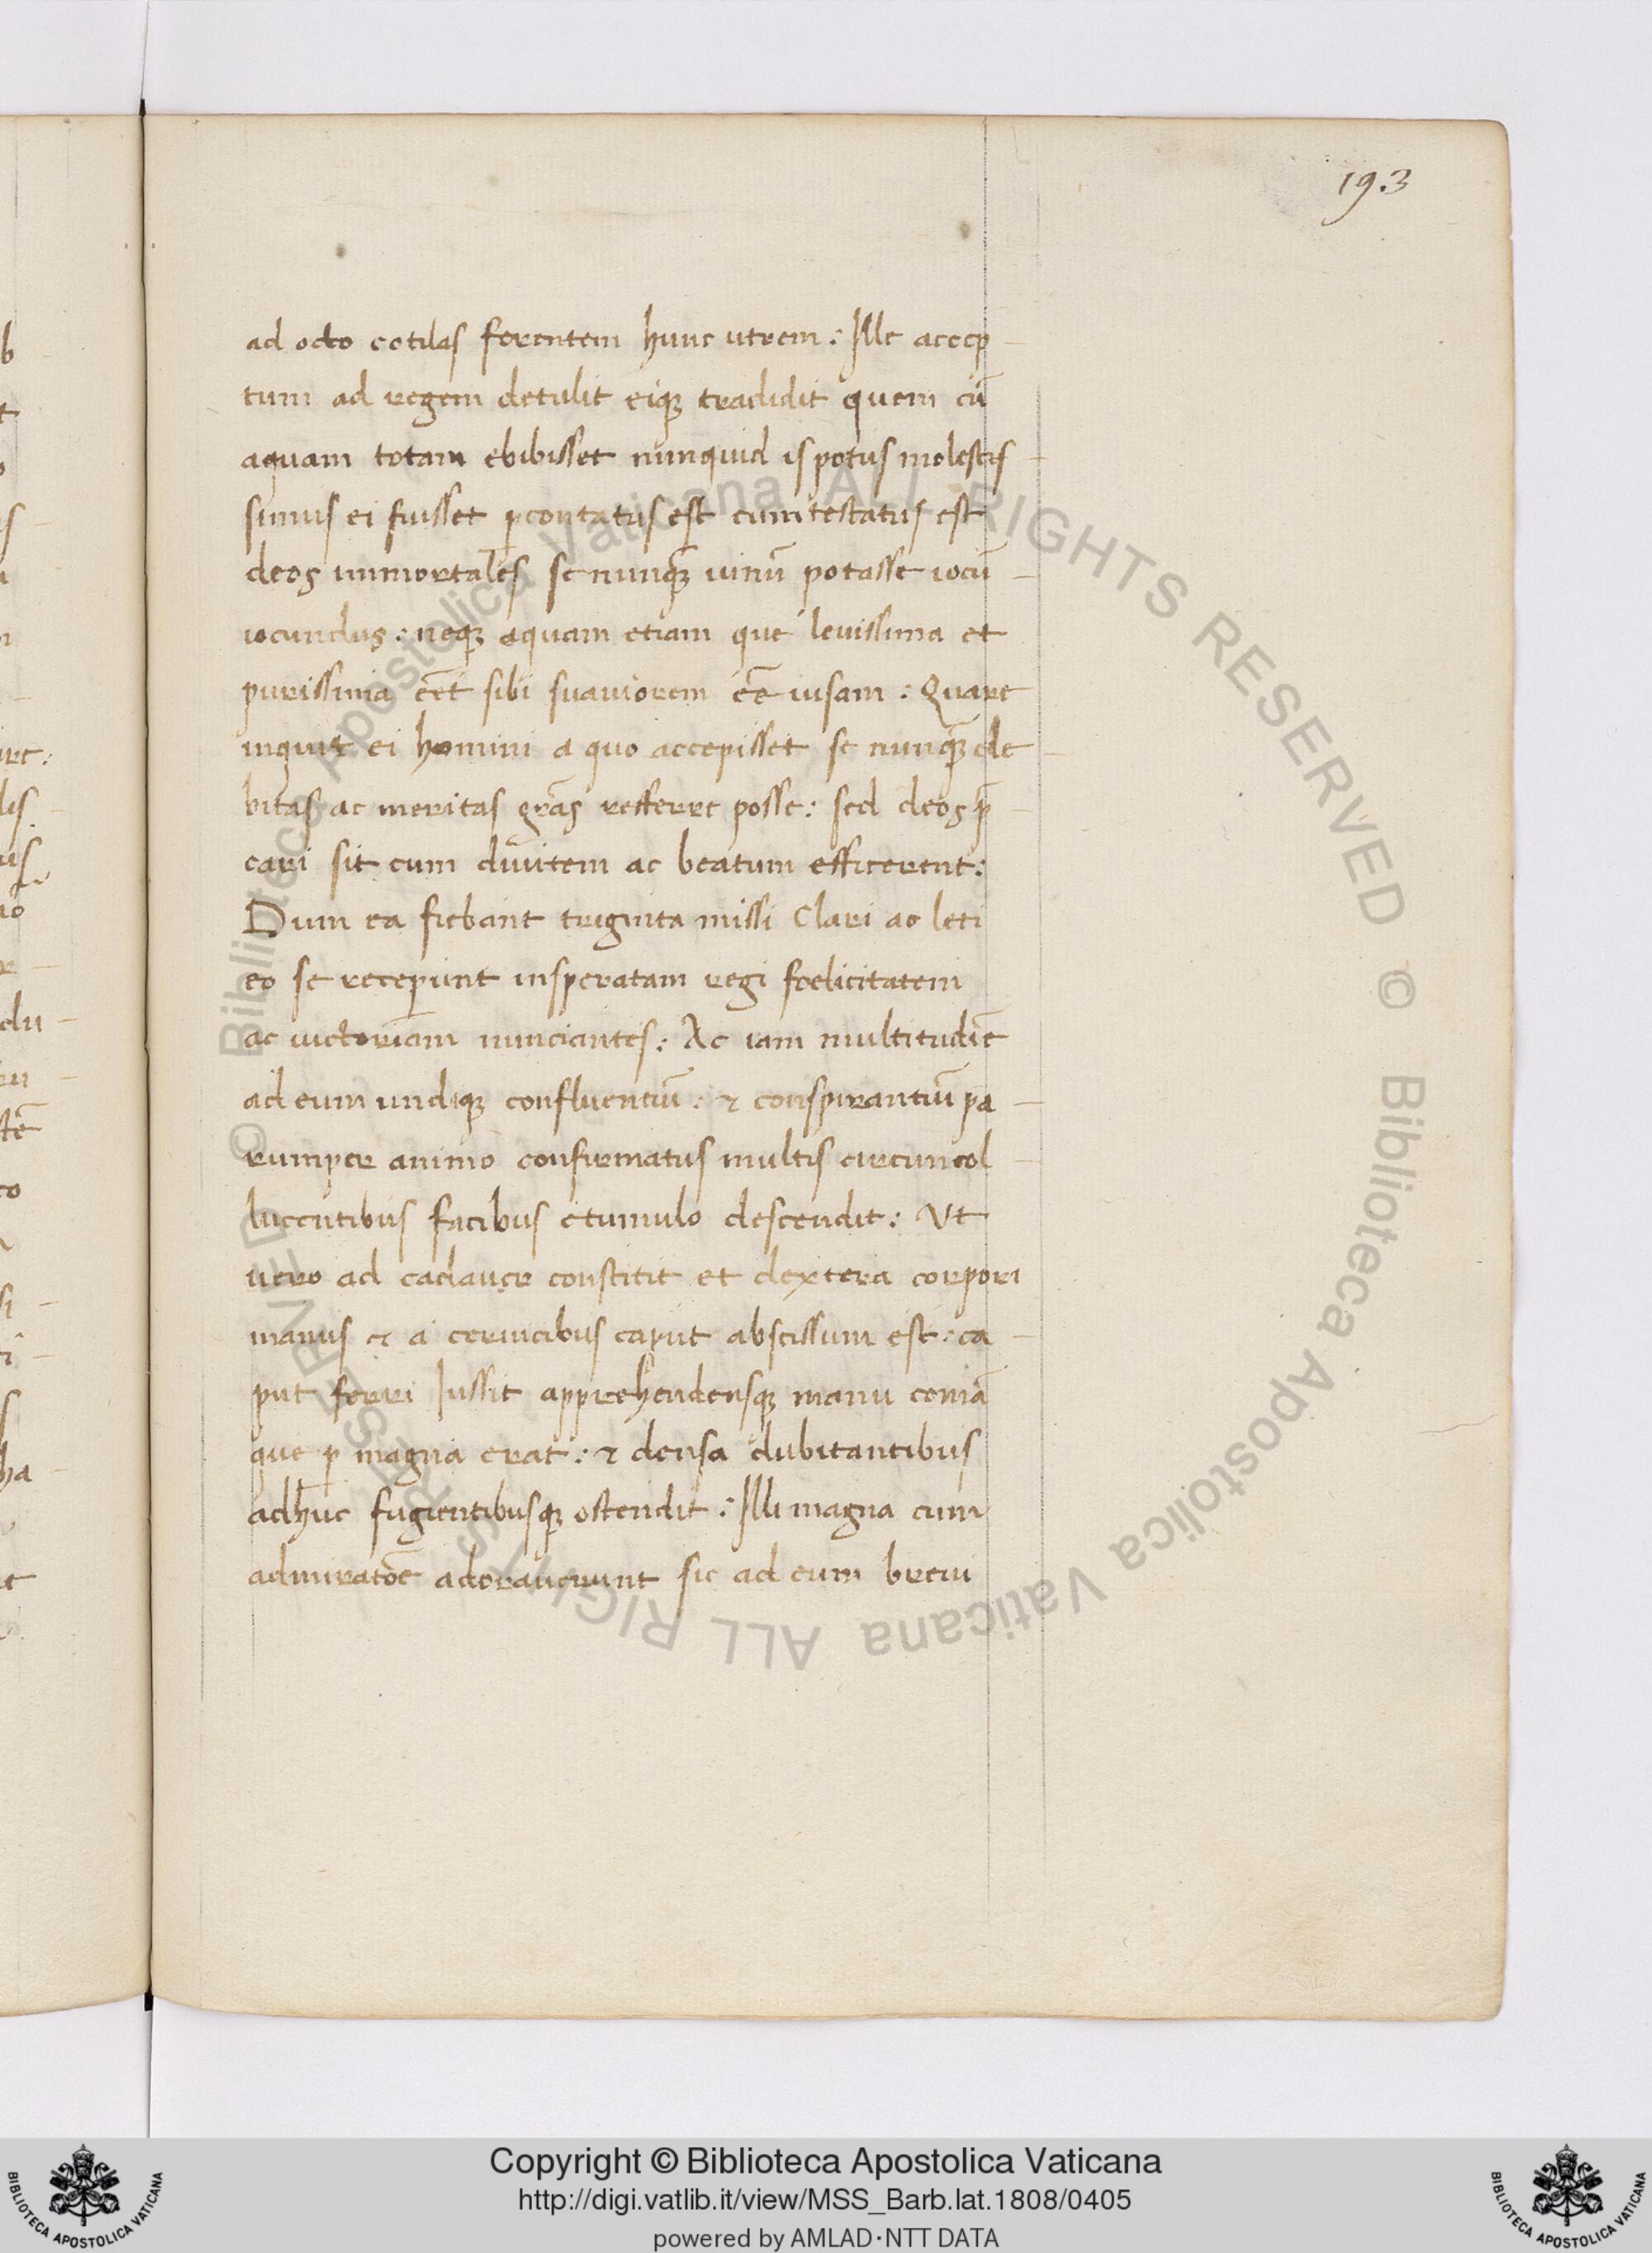 193
ad octo cotilas ferentem hunc utrem: Ille accep
tum ad regem detulit eiqꝫ tradidit quem cū
aquam totam ebibisset nunquid is potus molestis
simus ei fuisset ꝑcontatus est cum testatus est
deos immortales se nunqꝫ̄ uinū potasse iocū
iocundus: neqꝫ aquam etiam que leuissima et
purissima eēt sibi suauiorem eē uisam: Quare
inquit ei homini a quo accepisset se nunqꝫ̄ de
bitas ac meritas grās refferre posse: sed deos p̄
cari sit cum diuitem ac beatum efficerent:
Dum ea fiebant triginta missi Clari ac leti
eo se receperunt insperatam regi foelicitatem
ac uictoriam nunciantes: Ac iam multitudiē
ad eum undiqꝫ confluentiū: & conspirantiū pa
rumper animo confirmatus multis circumcol
lucentibus facibus e tumulo descendit: Ut
uero ad cadauer constitit et dextera corpori
manus & a ceruicibus caput abscissum est: ca
put ferri Iussit apprehendensqꝫ manu comā
que ꝑ magna erat: & densa dubitantibus
adhuc fugientibusqꝫ ostendit: Illi magna cum
admiratōe adorauerunt sic ad eum breui
Copyright © Biblioteca Apostolica Vaticana
http://digi.vatlib.it/view/MSS_Barb.lat.1808/0405
powered by AMLAD·NTT DATA